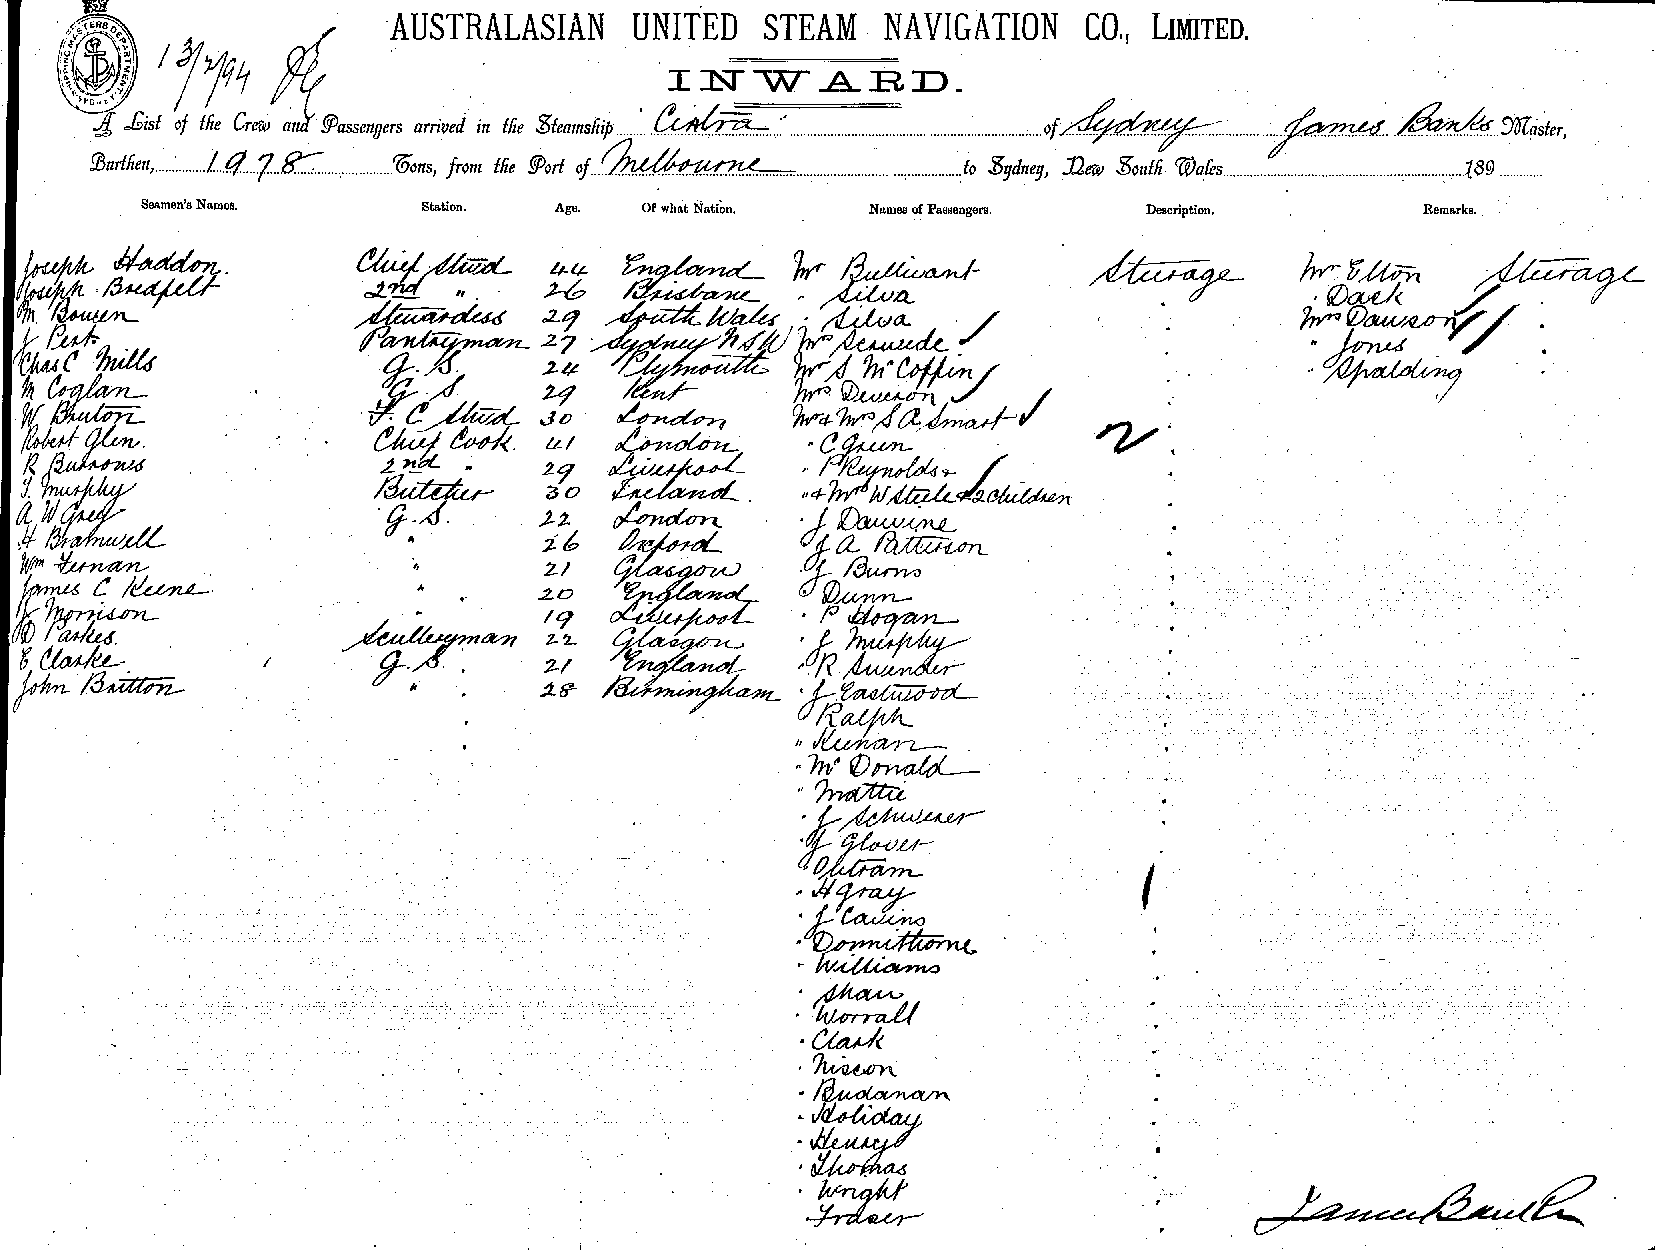 SHIPPING MASTERS DEPARTMENT
13/2/94
AUSTRALASIAN UNITED STEAM NAVIGATION CO., LIMITED.
INWARD.
A List of the Crew and Passengers arrived in the Steamship Cintra of Sydney James Banks Master,
Burthen, 1978 Tons, from the Port of Melbourne to Sydney, New South Wales 189
Seamen's Names. Station. Age. Of what Nation. Names of Passengers. Description. Remarks.
Joseph Haddon. Chief Stwd 44 England Mr Bullivant Steerage Mr Elton Steerage
Joseph Bredfelt 2nd " 26 Brisbane " Silva " Dack
M Bowen Stewardess 29 South Wales " Silva Mrs Dawson
J Pert Pantryman 27 Sydney NSW Mrs " Jones
Chas C Mills G. S. 24 Plymouth Mr S McCoffin " Spalding
M Coglan G S 29 Kent Mrs Deverson
W Bruton F. C. Stwd 30 London Mr & Mrs S A Smart
Robert Glen. Chief Cook. 41 London " C Green
R Burrows 2nd " 29 Liverpool " P Reynolds
T. Murphy Butcher 30 Ireland. " & Mrs W Steele & 2 children
A W Grey G. S. 22 London " J Dawine
H Bramwell " 26 Oxford " J A Patterson
Wm Fernan " 21 Glasgow " J Burns
James C Keene " 20 England " Dunn
J Morrison " 19 Liverpool " P Hogan
D Parkes Sculleryman 22 Glasgow " J Murphy
E Clarke G. S. 21 England " R
John Britton " 28 Birmingham " J Eastwood
" Ralph
" Keenan
" McDonald
" Mattie
" J Schwerer
" J Glover
" Outram
" H Gray
" J Cavins
" Donnithorne
" Williams
" Shaw
" Worrall
" Clark
" Nixon
" Budanan
" Holiday
" Henry
" Thomas
" Wright
" Fraser
James Banks